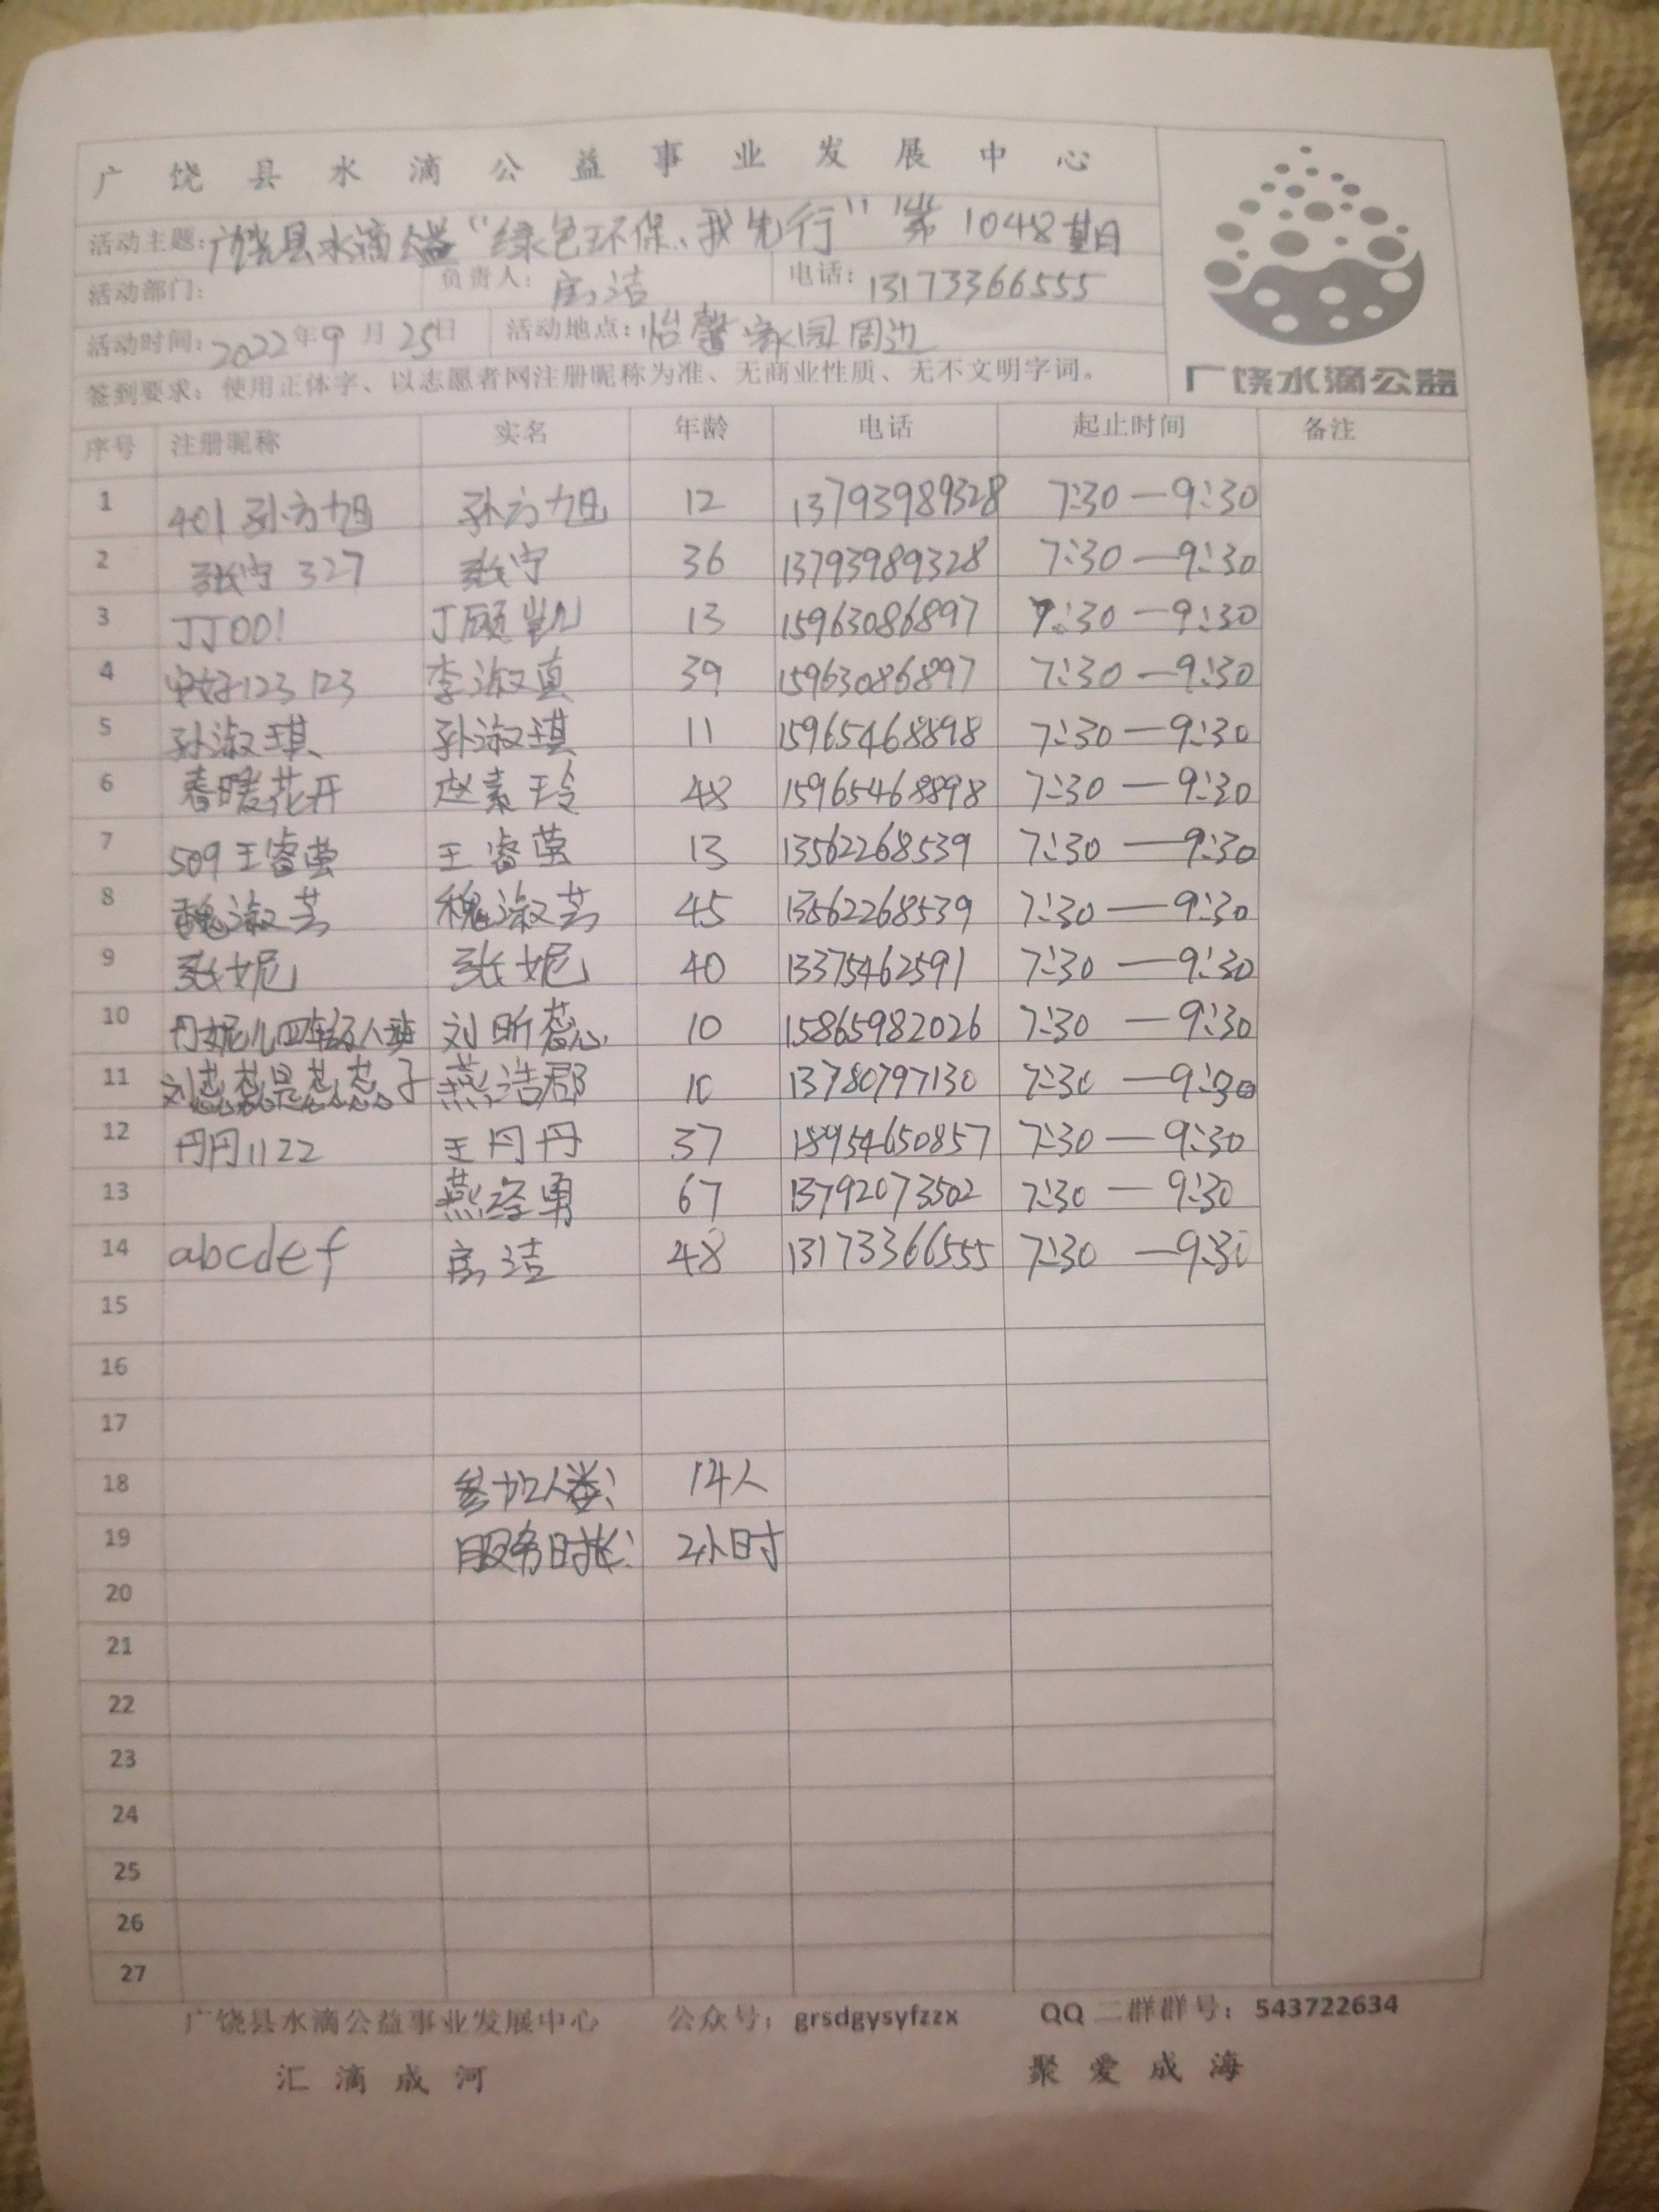 广饶县水滴公益事业发展中心
活动主题：广饶县水滴公益“绿色环保、我先行”第1048期
活动部门： 负责人：房洁 电话：13173366555
活动时间：2022年9月25日 活动地点：怡馨家园周边
签到要求：使用正体字、以志愿者网注册昵称为准、无商业性质、无不文明字词。
广饶水滴公益
序号 注册昵称 实名 年龄 电话 起止时间 备注
1 401孙方旭 孙方旭 12 13793989328 7:30—9:30
2 张宁327 张宁 36 13793989328 7:30—9:30
3 JJ001 丁颀凯 13 15963086897 7:30—9:30
4 安好123123 李淑真 39 15963086897 7:30—9:30
5 孙淑琪 孙淑琪 11 15965468898 7:30—9:30
6 春暖花开 赵素玲 48 15965468898 7:30—9:30
7 509王睿萤 王睿萤 13 13562268539 7:30—9:30
8 魏淑芸 魏淑芸 45 13562268539 7:30—9:30
9 张妮 张妮 40 13375462591 7:30—9:30
10 丹妮儿四年级八班 刘昕蕊 10 15865982026 7:30—9:30
11 刘蕊蕊是蕊蕊子 燕浩郡 10 13780797130 7:30—9:30
12 丹丹1122 王丹丹 37 18954650857 7:30—9:30
13 燕经勇 67 13792073502 7:30—9:30
14 abcdef 房洁 48 13173366555 7:30—9:30
15
16
17
18 参加人数： 14人
19 服务时长： 2小时
20
21
22
23
24
25
26
27
广饶县水滴公益事业发展中心 公众号：grsdgysyfzzx QQ二群群号：543722634
汇滴成河 聚爱成海